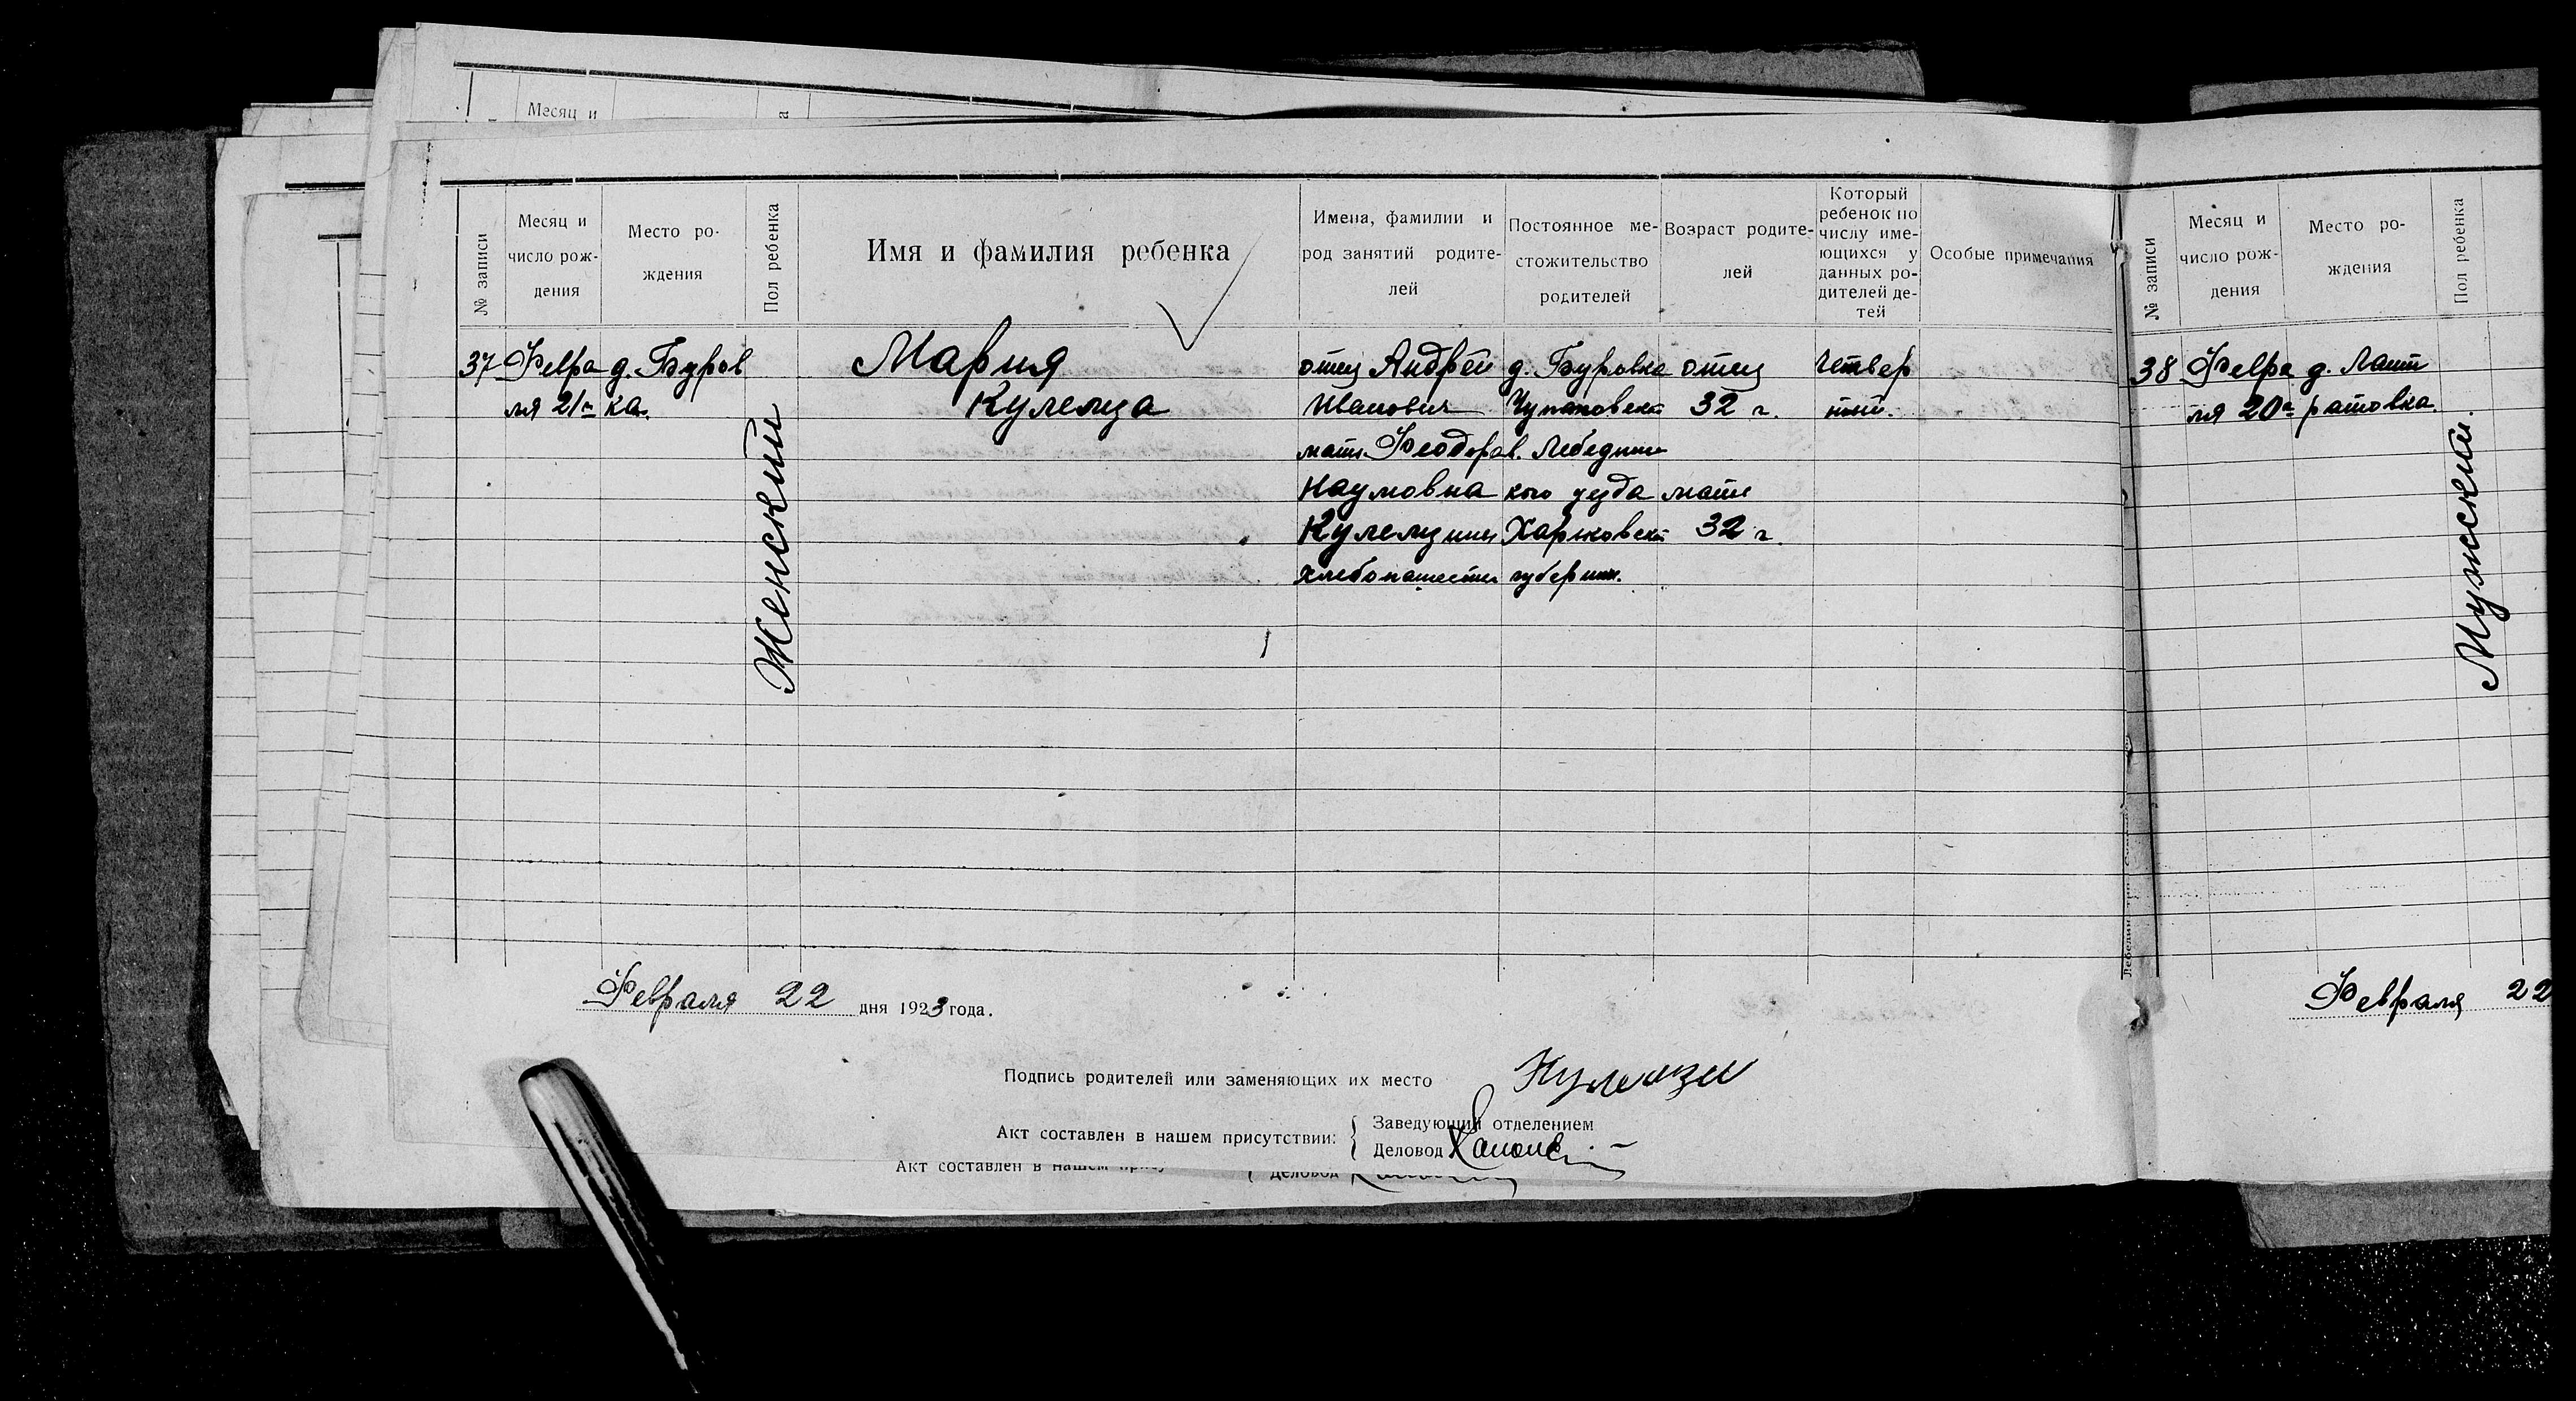 Месяц и
№ записи
Месяц и число рождения
Место рождения
Пол ребенка
Имя и фамилия ребенка
Имена, фамилии и род занятий родителей
Постоянное местожительство родителей
Возраст родителей
Который ребенок по числу имеющихся у данных родителей детей
Особые примечания
37
Февра
ля 21го
д. Буров
ка.
Женский
Мария
Кулемза
отец Андрей
Иванович
мать Феодора
Наумовна
Кулемзины
хлебопашество
д. Буровка
в. Лебединс
кого уезда
Харьковской
губернии.
отец
32 г.
мать
32 г.
четвер
тый.
Февраля 22 дня 1923 года.
Подпись родителей или заменяющих их место
Акт составлен в нашем присутствии:
Заведующий отделением
Деловод
Акт составлен в нашем
Деловод
№ записи
Месяц и число рождения
Место рождения
Пол ребенка
38
Февра
ля 20го
д. Лашт
ратовка.
Мужской.
Февраля 22